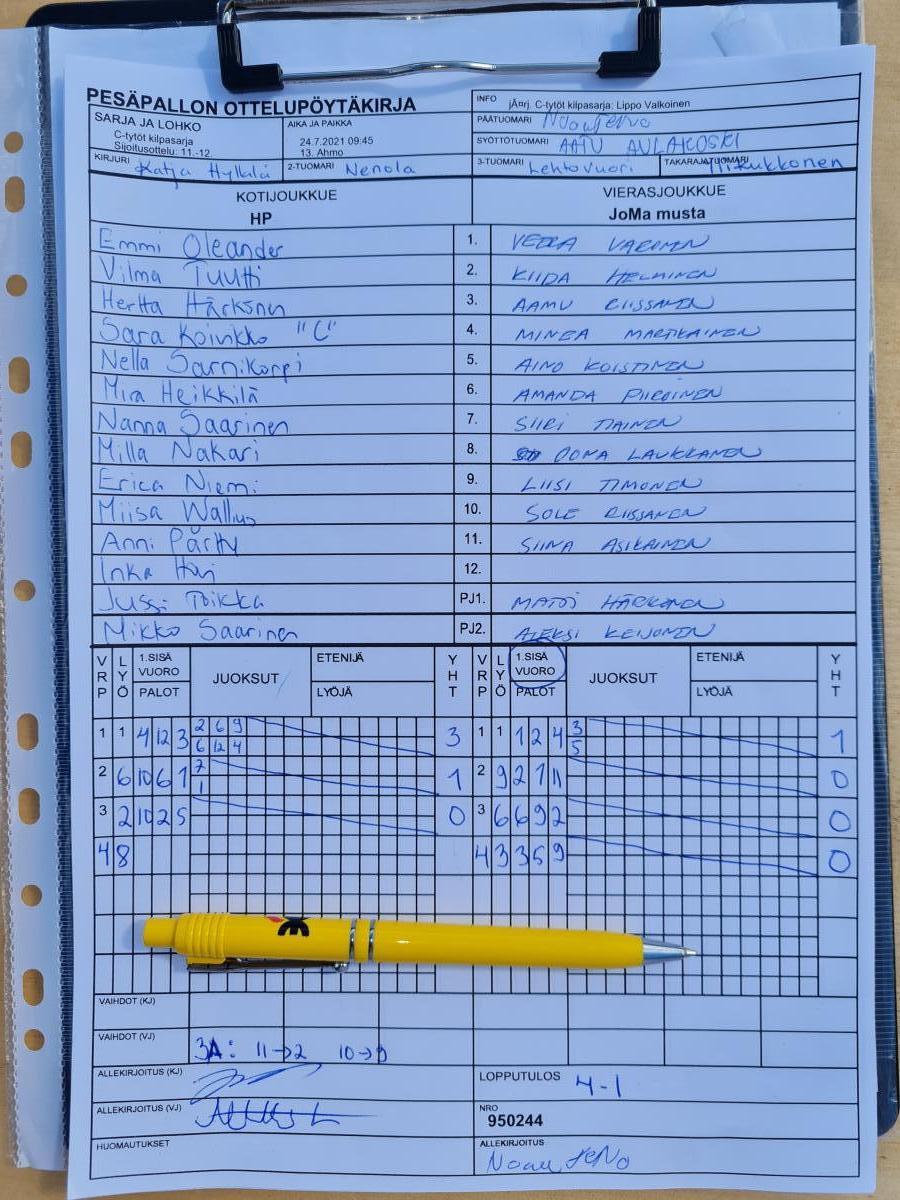 PESÄPALLON OTTELUPÖYTÄKIRJA
INFO jÃ¤rj. C-tytöt kilpasarja: Lippo Valkoinen
SARJA JA LOHKO
C-tytöt kilpasarja
Sijoitusottelu: 11.-12.
AIKA JA PAIKKA
24.7.2021 09:45
13. Ahmo
PÄÄTUOMARI
SYÖTTÖTUOMARI AATU AULAKOSKI
KIRJURI Katja Hylkilä
2-TUOMARI Nenola
3-TUOMARI Lehtovuori
TAKARAJATUOMARI
KOTIJOUKKUE
HP
VIERASJOUKKUE
JoMa musta
Emmi Oleander 1. VEERA
Vilma Tuutti 2. KIIDA HELMINEN
Hertta Härkönen 3. AAMU RIISSANEN
Sara Koivikko "C" 4. MINEA MARTIKAINEN
Nella Sarnikorpi 5. AINO KOISTINEN
Mira Heikkilä 6. AMANDA PIIROINEN
Nanna Saarinen 7. SIIRI TIAINEN
Milla Nakari 8. OONA LAUKKANEN
Erica Niemi 9. LIISI TIMONEN
Miisa Wallius 10. SOLE RIISSANEN
Anni Pärtty 11. SIINA ASIKAINEN
Inka 12.
Jussi Toikka PJ1. HÄRKÖNEN
Mikko Saarinen PJ2. ALEKSI KEIJONEN
VRP LYÖ 1.SISÄ VUORO PALOT JUOKSUT ETENIJÄ LYÖJÄ YHT VRP LYÖ 1.SISÄ VUORO PALOT JUOKSUT ETENIJÄ LYÖJÄ YHT
1 1 4 12 3 2 6 9 3 1 1 1 2 4 3 1
6 12 4 5
2 6 10 6 1 7 1 2 9 2 7 11 0
1
3 2 10 2 5 0 3 6 6 9 2 0
4 8 4 3 3 5 9 0
VAIHDOT (KJ)
VAIHDOT (VJ) 3A: 11→2 10→9
ALLEKIRJOITUS (KJ)
LOPPUTULOS 4-1
ALLEKIRJOITUS (VJ)
NRO
950244
HUOMAUTUKSET
ALLEKIRJOITUS